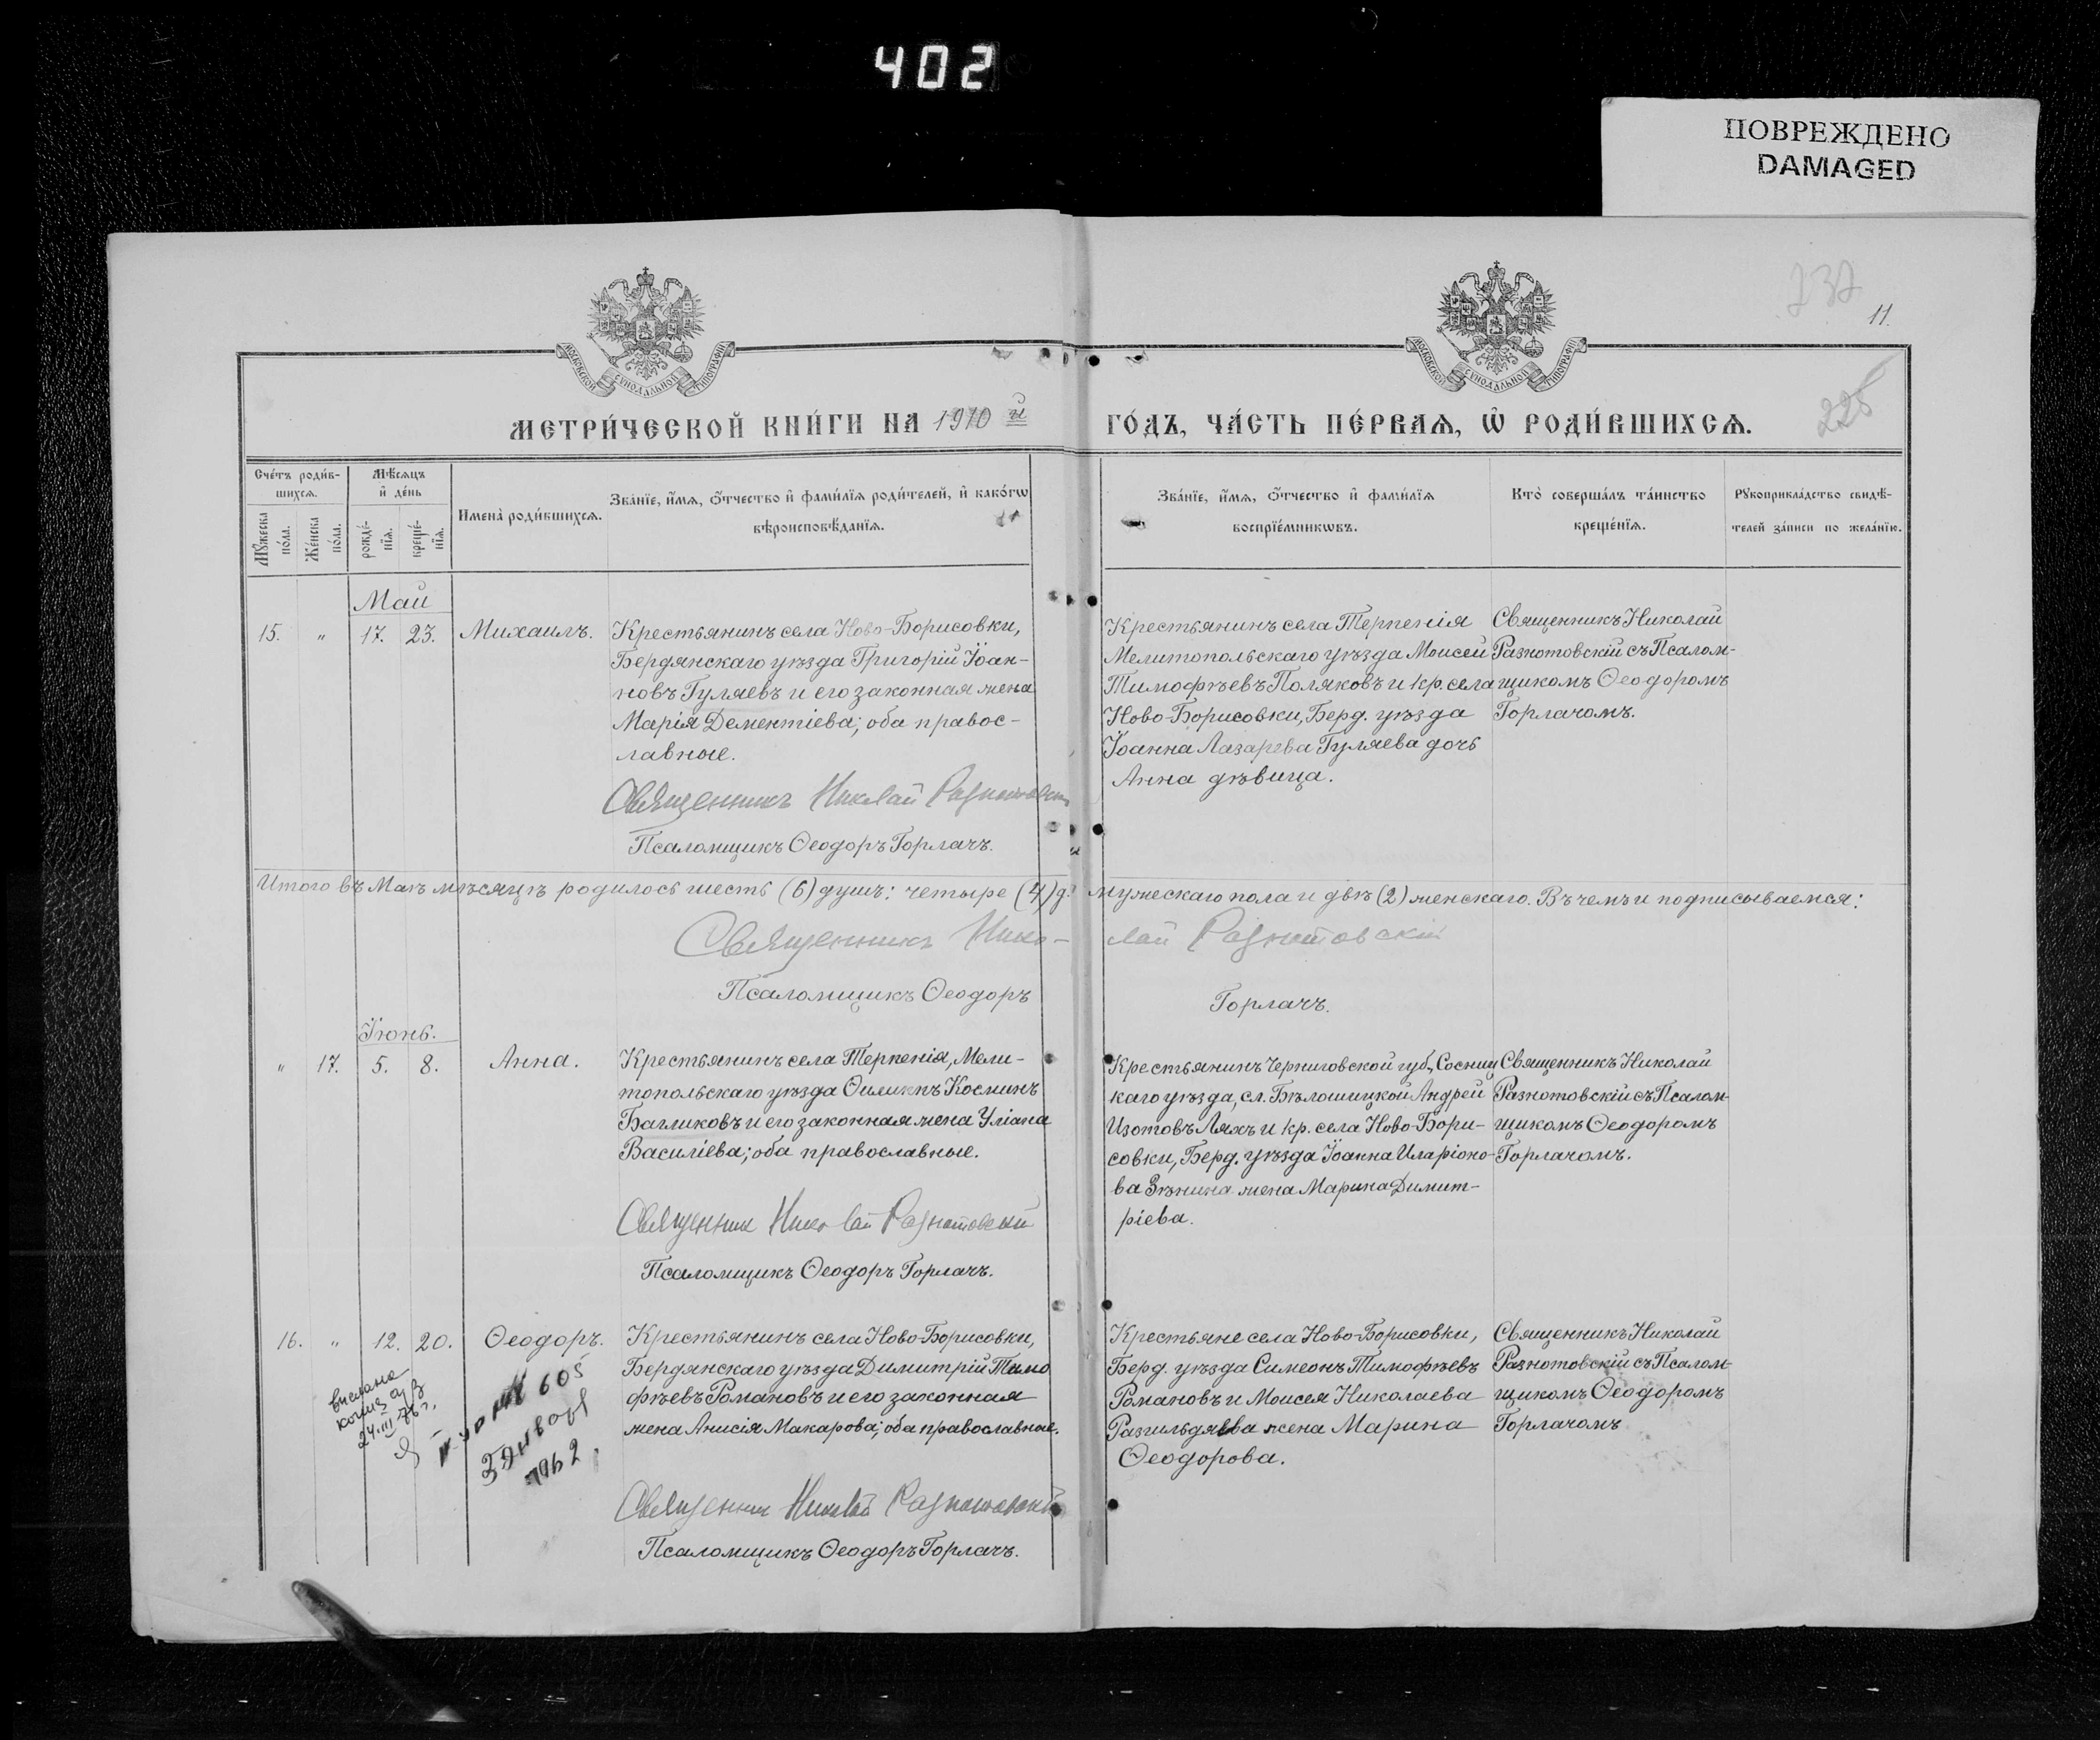 402
ПОВРЕЖДЕНО
DAMAGED
237
11.
МОСКОВСКОЙ СѴНОДАЛЬНОЙ ТИПОГРАФІИ
МОСКОВСКОЙ СѴНОДАЛЬНОЙ ТИПОГРАФІИ
МЕТРИ́ЧЕСКОЙ КНИ́ГИ НА 1910 й ГО́ДЪ, ЧА́СТЬ ПЕ́РВАѦ, Ѡ҆ РОДИ́ВШИХСѦ.
226
Сче́тъ роди́в-
шихсѧ.
Мꙋ́жеска по́ла.
Же́нска по́ла.
Мѣ́сѧцъ
и҆ де́нь
рожде́-
нїѧ.
креще́-
нїѧ.
Имена̀ роди́вшихсѧ.
Зва́нїе, и҆́мѧ, ѻ҆́тчество и҆ фами́лїѧ роди́телей, и҆ како́гѡ
вѣроисповѣ́данїѧ.
Зва́нїе, и҆́мѧ, ѻ҆́тчество и҆ фами́лїѧ
воспрїе́мникѡвъ.
Кто̀ соверша́лъ та́инство
креще́нїѧ.
Рꙋкоприкла́дство свидѣ́-
телей за́писи по жела́нїю.
Май
15. " 17. 23. Михаилъ.
Крестьянинъ села Ново-Борисовки,
Бердянскаго уѣзда Григорій Іоан-
новъ Гуляевъ и его законная жена
Марія Дементіева; оба правос-
лавные.
Священникъ Николай Разнотовскій
Псаломщикъ Ѳеодоръ Горлачъ.
Крестьянинъ села Терпенія
Мелитопольскаго уѣзда Моисей
Тимофѣевъ Поляковъ и кр. села
Ново-Борисовки, Берд. уѣзда
Іоанна Лазарева Гуляева дочь
Анна дѣвица.
Священникъ Николай
Разнотовскій съ Псалом-
щикомъ Ѳеодоромъ
Горлачомъ.
Итого въ Маѣ мѣсяцѣ родилось шесть (6) душъ: четыре (4) д. мужескаго пола и двѣ (2) женскаго. Въ чемъ и подписываемся:
Священникъ Нико- лай Разнотовскій
Псаломщикъ Ѳеодоръ Горлачъ.
Іюнь.
" 17. 5. 8. Анна.
Крестьянинъ села Терпенія, Мели-
топольскаго уѣзда Филиппъ Косминъ
Багликовъ и его законная жена Уліана
Василіева; оба православные.
Священник Николай Разнотовскій
Псаломщикъ Ѳеодоръ Горлачъ.
Крестьянинъ Черниговской губ., Сосниц
каго уѣзда, сл. Бѣлошицкой Андрей
Изотовъ Ляхъ и кр. села Ново-Бори-
совки, Берд. уѣзда Іоанна Иларіоно-
ва Зѣнина жена Марина Димит-
ріева.
Священникъ Николай
Разнотовскій съ Псалом-
щикомъ Ѳеодоромъ
Горлачомъ.
16. " 12. 20. Ѳеодоръ.
Крестьянинъ села Ново-Борисовки,
Бердянскаго уѣзда Димитрій Тимо
фѣевъ Романовъ и его законная
жена Анисія Макарова; оба православные.
Священник Николай Разнотовскій
Псаломщикъ Ѳеодоръ Горлачъ.
Крестьяне села Ново-Борисовки,
Берд. уѣзда Симеонъ Тимофѣевъ
Романовъ и Моисея Николаева
Разгильдяева жена Марина
Ѳеодорова.
Священникъ Николай
Разнотовскій съ Псалом-
щикомъ Ѳеодоромъ
Горлачомъ
24.III 76 г.
605
3 января
1962.